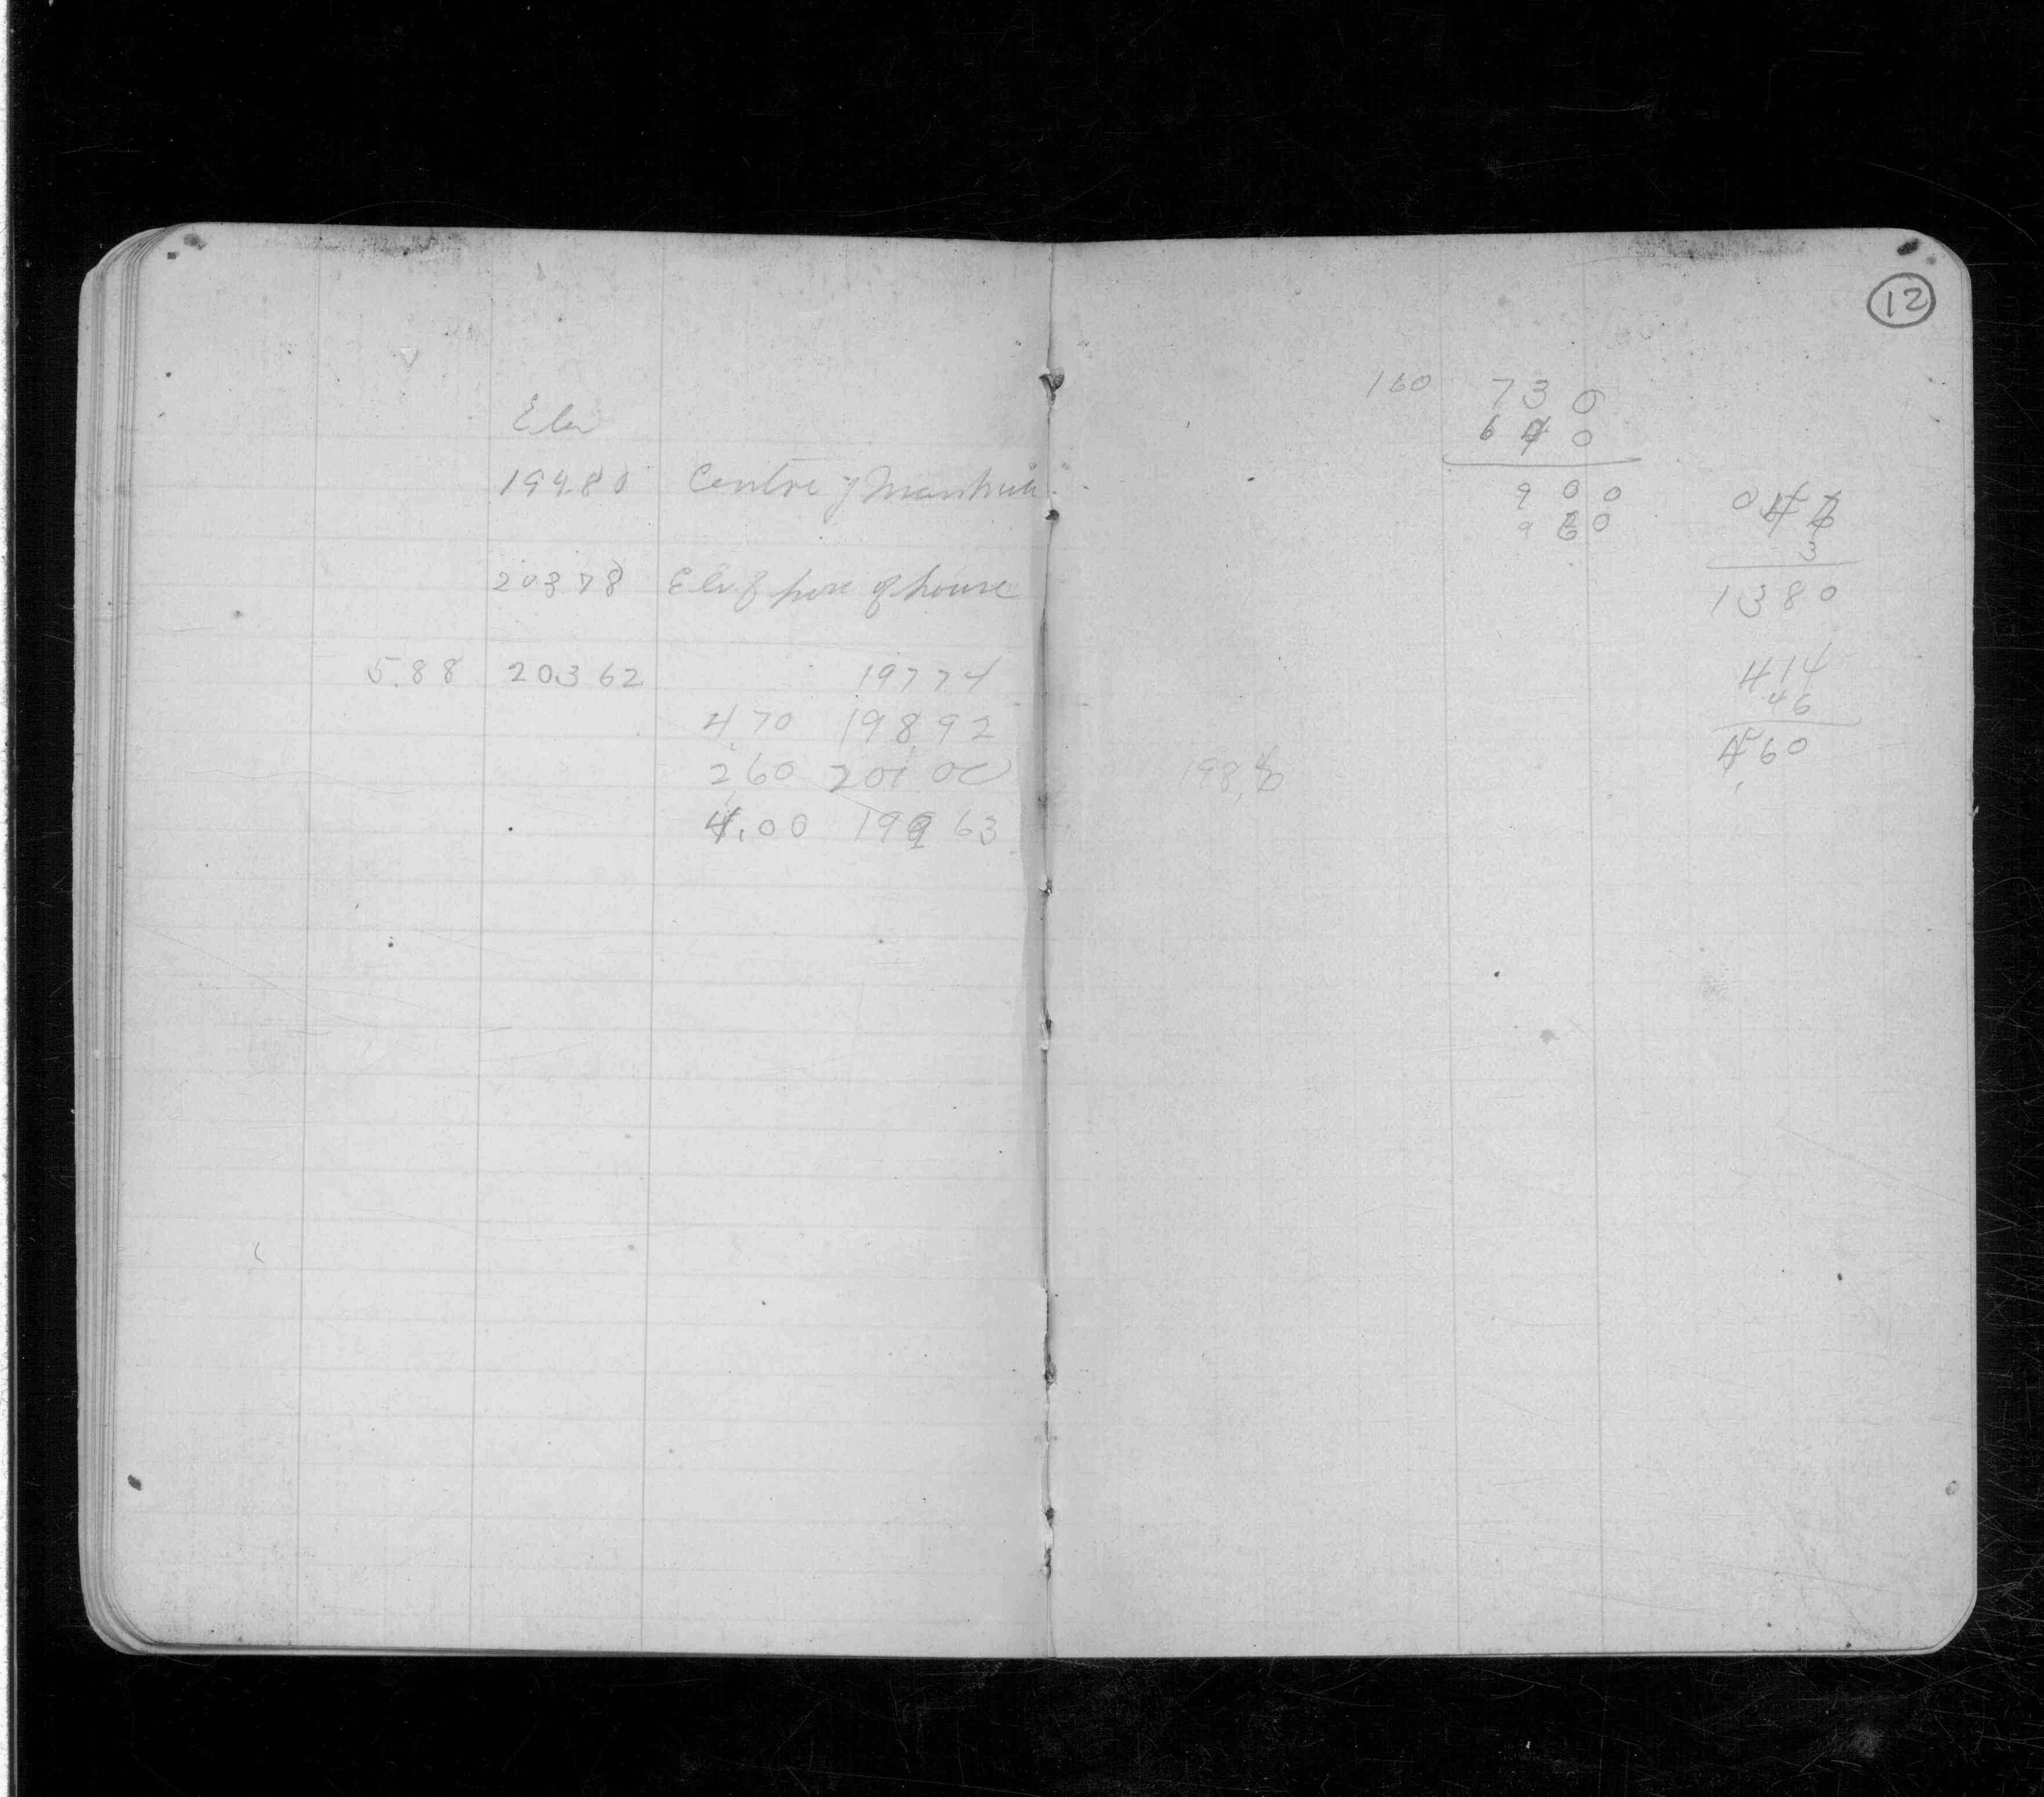 12
Elev
199.80 Centre of Manhole
203 78 Elev of pore of house
5.88 203 62 197 74
4.70 198.92
2.60 201 00
4.00 199 63
160 730
640
900
960
198.
3
1380
414
46
460